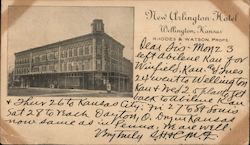 New Arlington Hotel
Wellington, Kansas
RHODES & WATSON, PROPS.
Dear Sis - Mon 23
left Abilene Kan for
Winfield, Kan. & Tues
24 went to Wellington
Kan & Wed 25 start for
back to Abilene Kan
& Thur 26 to Kansas City, Fri 27 to St Louis
Sat 28 to Back Dayton, O. Day in Kansas
now same as in Penna. We are well.